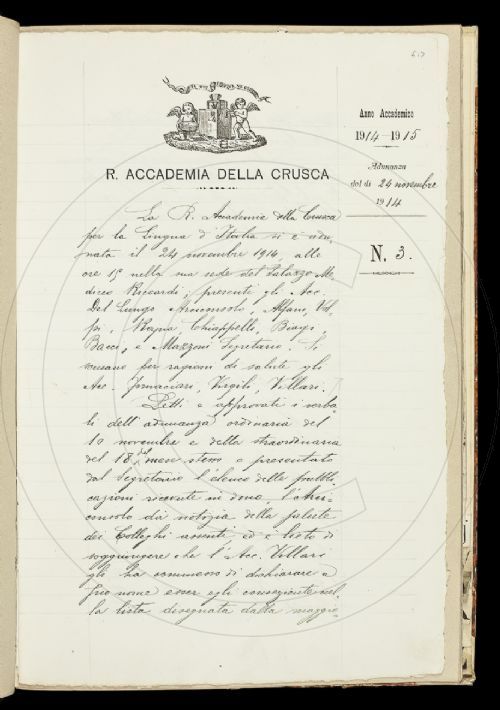 R. ACCADEMIA DELLA CRUSCA
Anno Accademico
1914-1915
Adunanza
del dì 24 novembre
1914
N. 3.
La R. Accademia della Crusca
per la Lingua d'Italia si è adu-
nata il 24 novembre 1914, alle
ore 15 nella sua sede del Palazzo Me-
diceo Riccardi; presenti gli Acc.
Del Lungo Arciconsolo, Alfani, Vol-
pi, Rajna, Chiappelli, Biagi,
Bacci, e Mazzoni Segretario. Si
scusano per ragioni di salute gli
Acc. Tomaciari, Virgili, Villari.
Letti e approvati i verba-
li dell'adunanza ordinaria del
10 novembre e della straordinaria
del 18 del mese stesso e presentato
dal Segretario l'elenco delle pubbli-
cazioni ricevute in dono, l'Arci-
consolo dà notizia della salute
dei Colleghi assenti, ed è lieto di
soggiungere che l'Acc. Villari
gli ha commesso di dichiarare a
suo nome esser egli consenziente nel-
la lista disegnata dalla maggio-